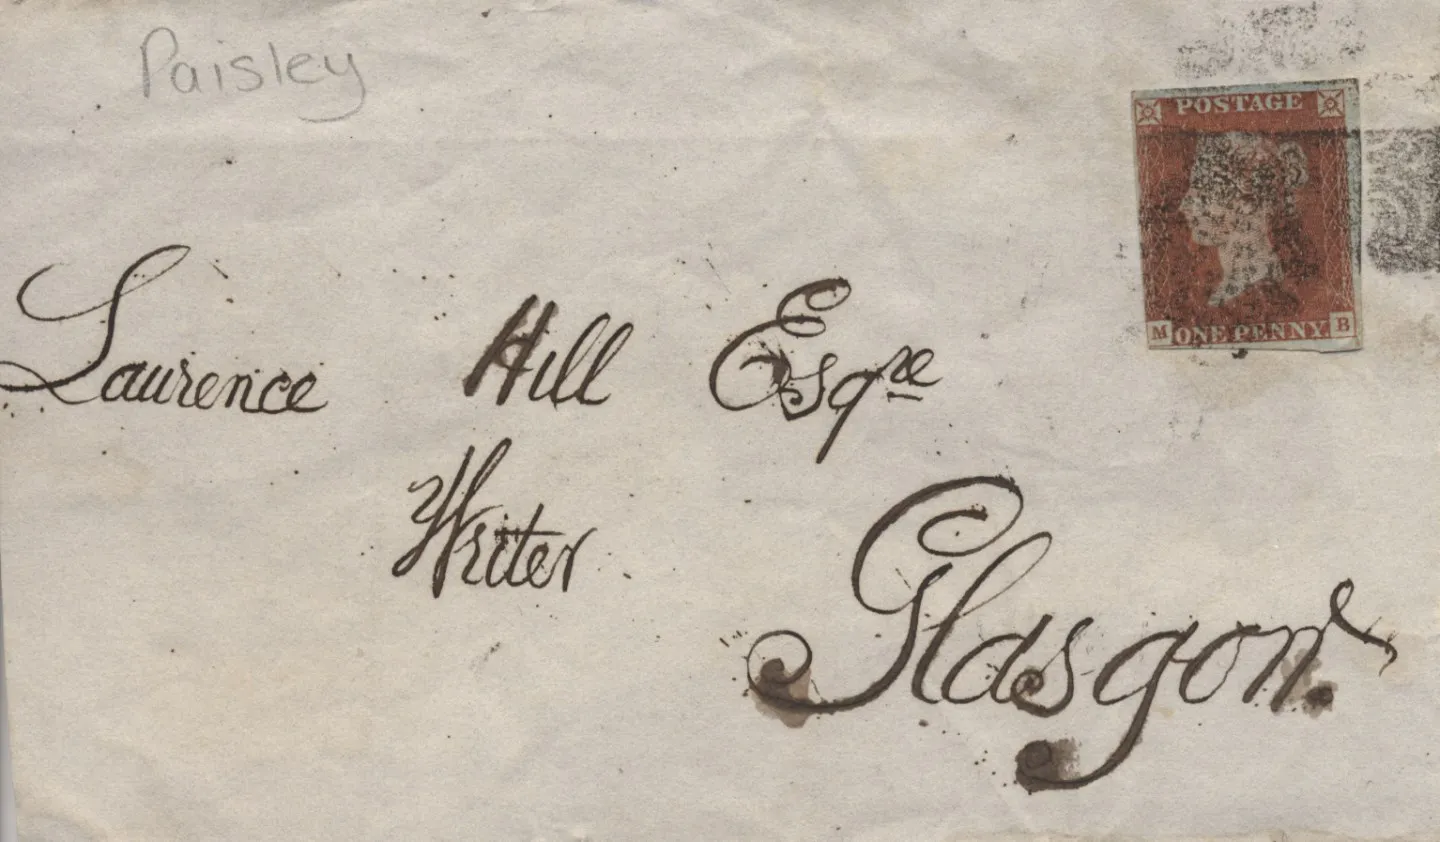 Paisley
POSTAGE
Laurence Hill Esqre
M ONE PENNY B
Writer
Glasgow